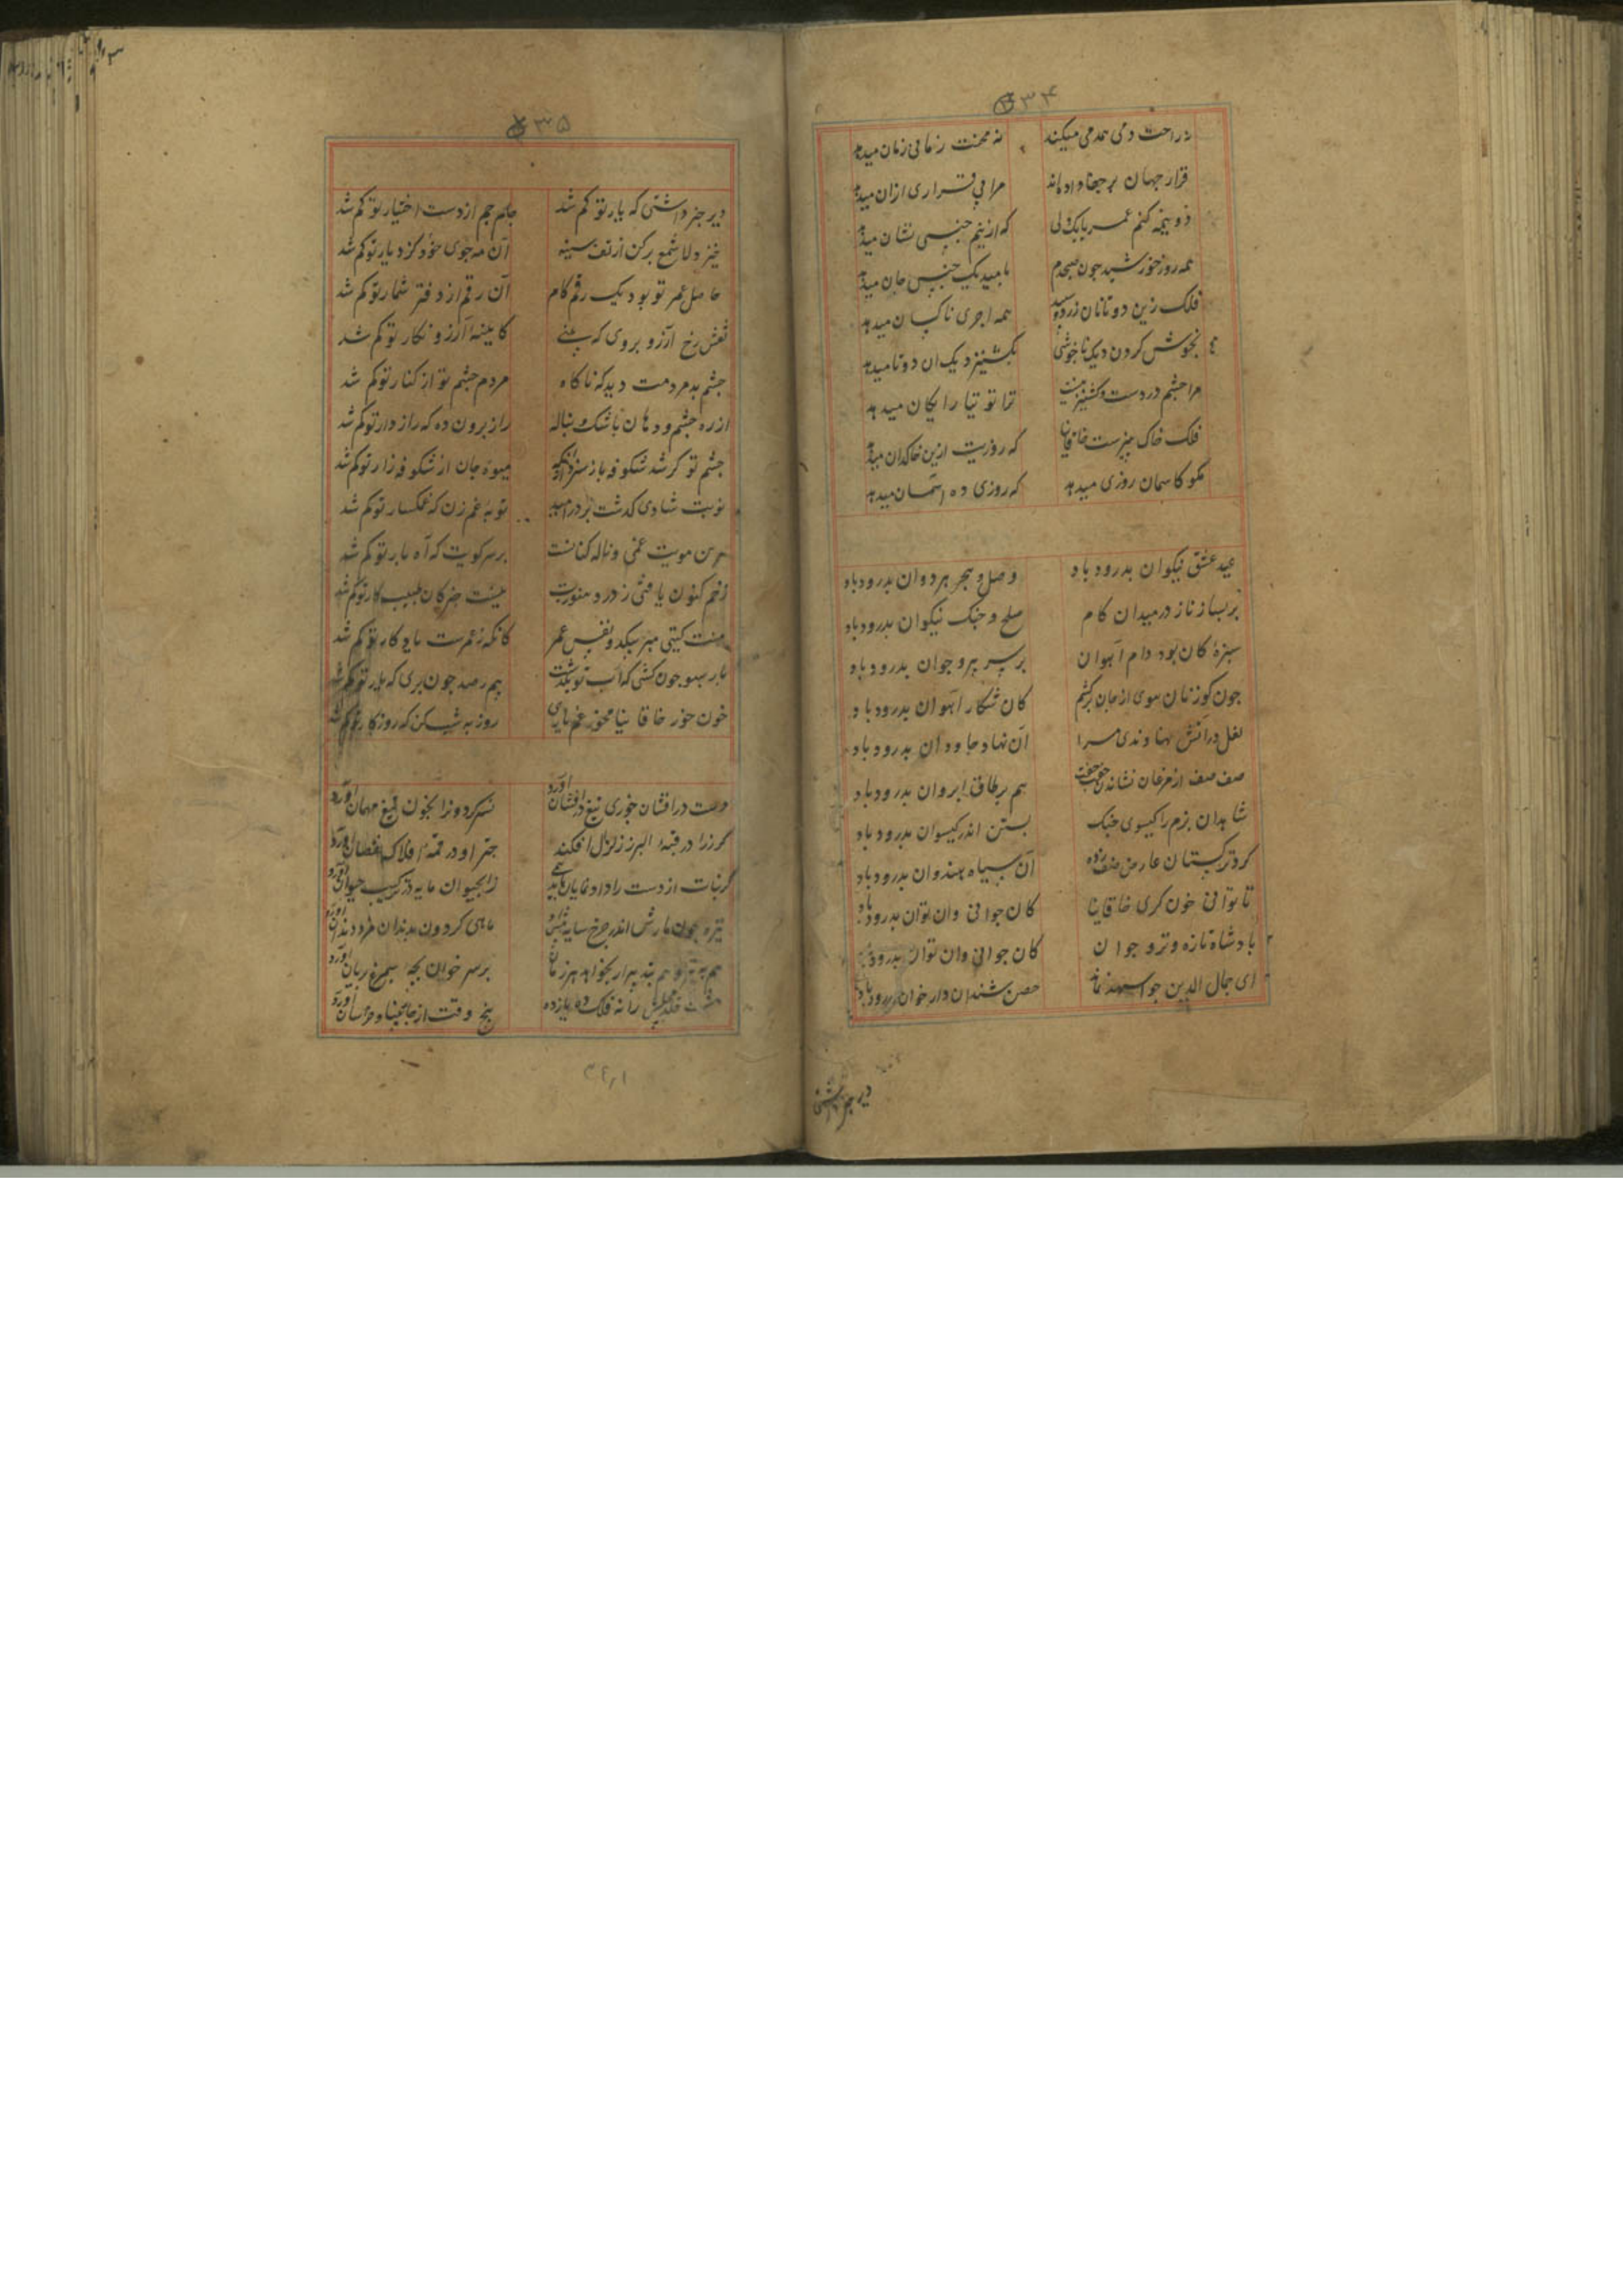 ۳۴
نه راحت دمی همدمی میکند نه محنت زمانی زمان میدهد
قرار جهان بر جفا داده‌اند مرا بی قراری ازان میدهد
دو نیمه کنم عمر با یک دلی که از نیم جنسی نشان میدهد
همه روز خورشید چون صبحدم بامید یک جنس جان میدهد
فلک زین دو تا نان زرد و سپید همه اجری ناکسان میدهد
بخوش کردن دیک ناخوشی بکشنیز دیک ان دو نا میدهد
مرا چشم دردست و کشنیز نیست ترا توتیا رایکان میدهد
فلک خاک بیزست خاقانیا که روزیت ازین خاکدان میدهد
مکو کاسمان روزی میدهد که روزی ده اسمان میدهد
عید عشق نیکوان بدرود باد وصل و هجر هردوان بدرود باد
بر بساز ناز در میدان کام صلح و جنک نیکوان بدرود باد
سبزهٔ کان بود دام آهوان بر سر پیر و جوان بدرود باد
چون کوزنان هوی از جان برکشم کان شکار آهوان بدرود باد
لعل در آتش نهاوندی مرا آن نهاد جاودان بدرود باد
صف صف از مرغان نشاندن جفت جفت هم بر طاق ابروان بدرود باد
شاهدان بزم را کیسوی جنک بستن اندر کیسوان بدرود باد
کرد ترکستان عارض صف زده آن سپاه هندوان بدرود باد
تا توانی خون کری خاقانیا کان جوانی وان توان بدرود باد
پادشاه تازه و تر و جوان کان جوانی وان توان بدرود باد
ای جمال الدین جو اسپهبد نماند حصن شندان دار خوان بدرود باد
دیر خبر داشتی
۳۵
دیر خبر داشتی که یار تو کم شد جام جم از دست اختیار تو کم شد
خیز دلا شمع برکن از تف سینه آن مه جوی خود کزد یار تو کم شد
حاصل عمر تو بود یک رقم کام آن رقم از دفتر شمار تو کم شد
نقش رخ آرزو بروی که بینی کاینهٔ آرزو نکار تو کم شد
چشم بد مردمت دید که ناکاه مردم چشم تو از کنار تو کم شد
از ره چشم و دهان باشک و بناله راز برون ده که رازدار تو کم شد
چشم تو کر شد شکوفه بار سزد زانکه میوه جان از شکوفه زار تو کم شد
نوبت شادی کذشت بر در امید نوبت غم زن که غمکسار تو کم شد
هر بن مویت غمی و ناله کنانست بر سر کویت که آه بار تو کم شد
زخم کنون یافتی ز درد هنوزت نیست خبر کان طبیب کار تو کم شد
منت کیتی مبر بیکدو نفس عمر کانکه ز عمرست یادکار تو کم شد
بار سبو چون کشی که آب تو بکذشت بیم رصد چون بری که بار تو کم شد
خون خور خاقانیا مخور غم ناری روز به شب کن که روزکار تو کم شد
دست در افشان چو زی تیغ درفشان آورد نسر کردونرا بخون تیغ مهمان آورد
کر زرا در قبهٔ البرز زلزل افکند چتر او در قمهٔ افلاک نقصان آورد
کر نبات از دست راد او نما یابد همی ز ابحیوان مایه در ترکیب حیوان آورد
نیزه چون مارش اندر چرخ سایه افکند ماهی کردون بدندان مزد دندان آورد
بر سر خوان بجهٔ سیمرغ بریان آورد
هشت خلد مجلسش را نه فلک ده یازده پنج وقت از چار مینا و خراسان آورد